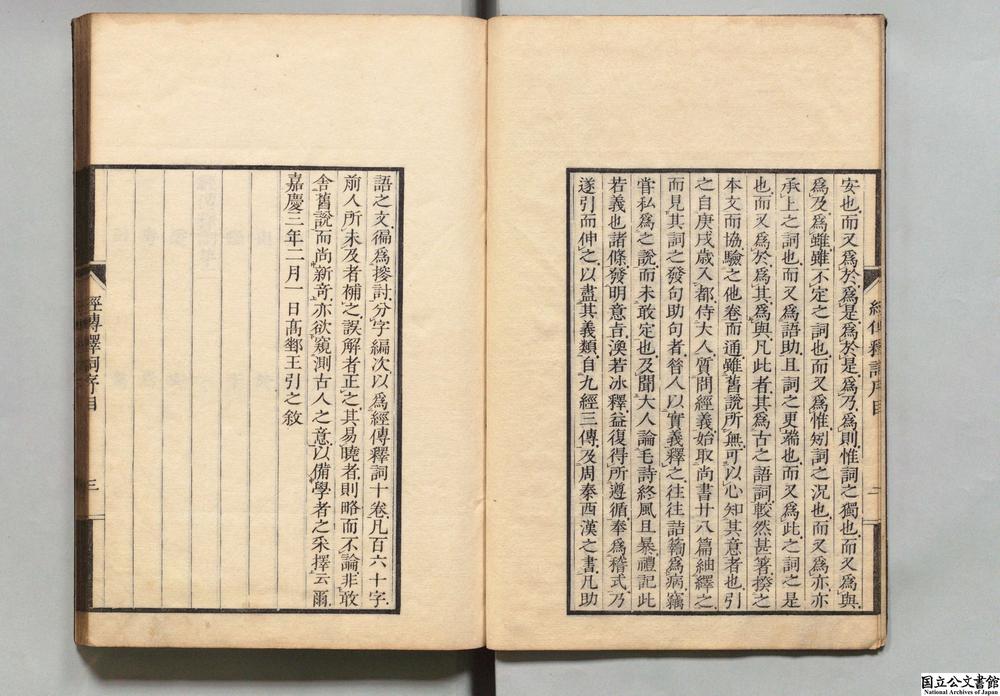 安也而又爲於爲是爲於是爲乃爲則惟詞之獨也而又爲與
爲及爲雖雖不定之詞也而又爲惟矧詞之況也而又爲亦亦
承上之詞也而又爲語助且詞之更端也而又爲此之詞之是
也而又爲於爲其爲與凡此者其爲古之語詞較然甚箸揆之
本文而協驗之他卷而通雖舊說所無可以心知其意者也引
之自庚戌歲入都侍大人質問經義始取尙書廿八篇紬繹之
而見其詞之發句助句者昔人以實義釋之往往詰𥷚爲病竊
嘗私爲之說而未敢定也及聞大人論毛詩終風且暴禮記此
若義也諸條發明意恉渙若冰釋益復得所遵循奉爲稽式乃
遂引而伸之以盡其義類自九經三傳及周秦西漢之書凡助
經傳釋詞序目
二
語之文徧爲搜討分字編次以爲經傳釋詞十卷凡百六十字
前人所未及者補之誤解者正之其易曉者則略而不論非敢
舍舊說而尚新奇亦欲窺測古人之意以備學者之采擇云爾
嘉慶三年二月一日高郵王引之敘
經傳釋詞序目
三
国立公文書館
National Archives of Japan